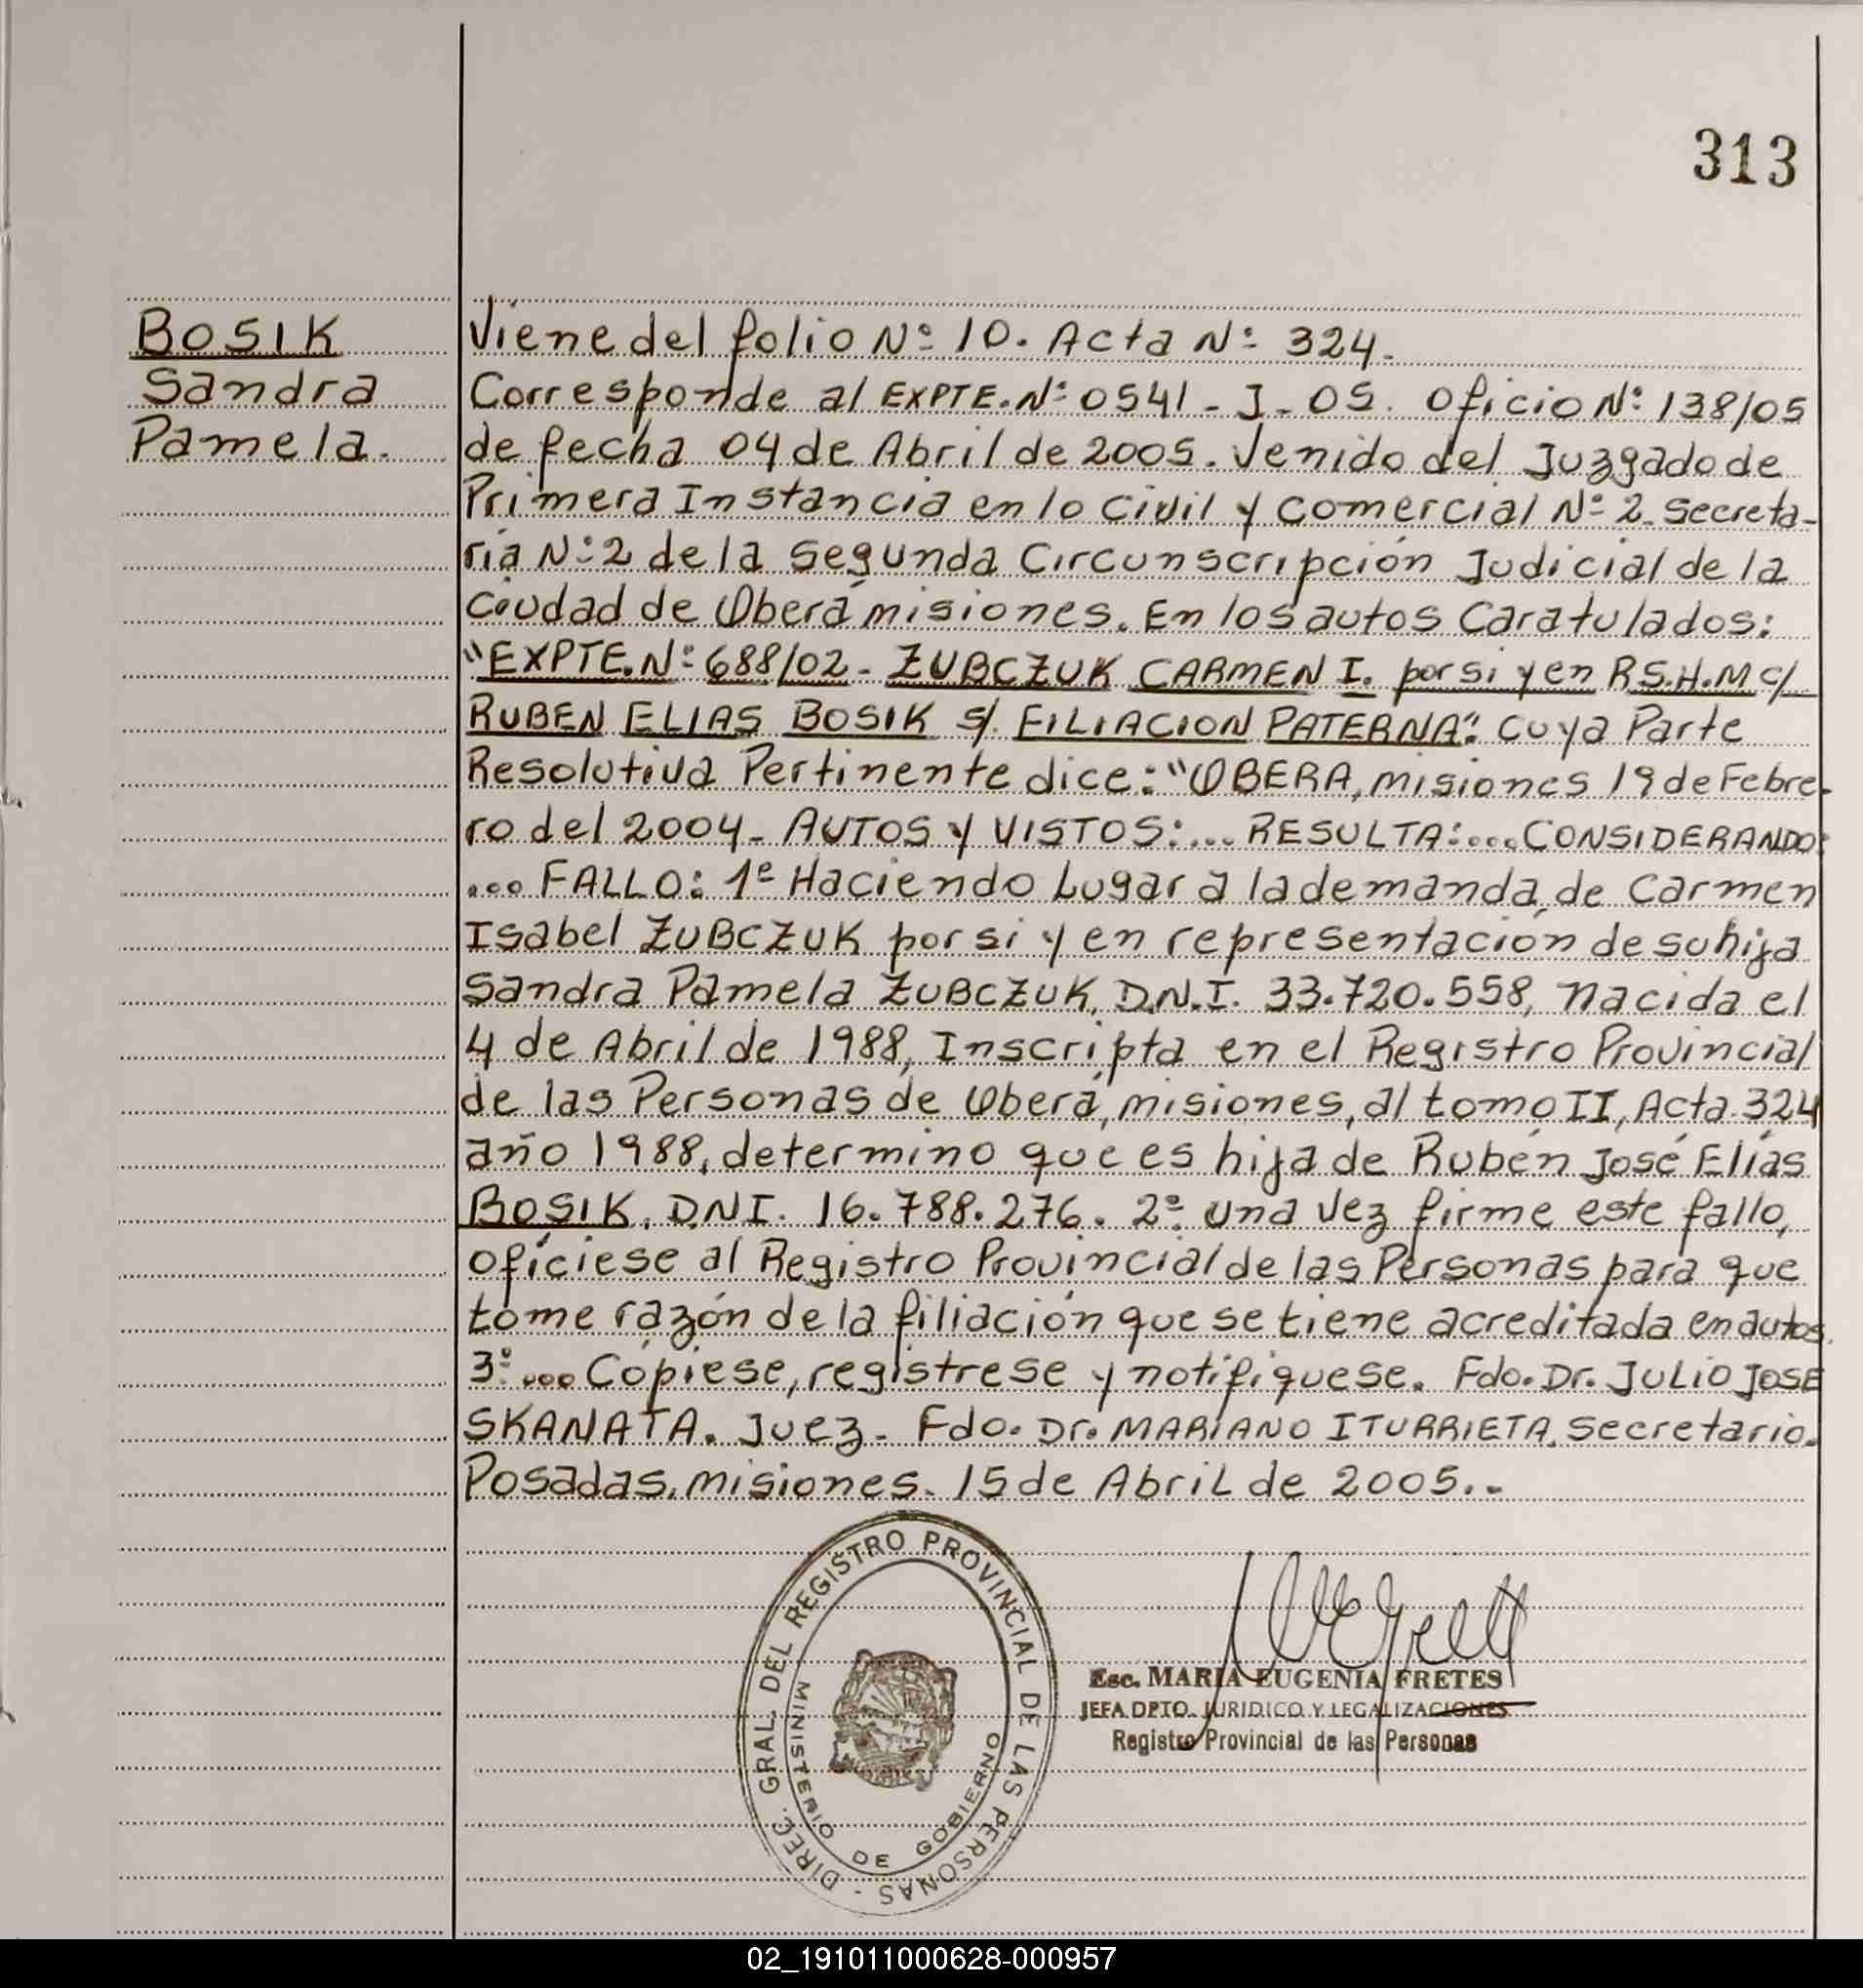 313
BOSIK
Sandra
Pamela.
Viene del folio Nº 10. Acta Nº 324.
Corresponde al EXPTE. Nº 0541 - J - 05. Oficio Nº 138/05
de fecha 04 de Abril de 2005. Venido del Juzgado de
Primera Instancia en lo Civil y Comercial Nº 2. Secreta-
ría Nº 2 de la Segunda Circunscripción Judicial de la
Ciudad de Oberá misiones. En los autos Caratulados:
"EXPTE. Nº 688/02 - ZUBCZUK CARMEN I. por si y en R.S.H.M c/
RUBEN ELIAS BOSIK s/. FILIACION PATERNA". Cuya Parte
Resolutiva Pertinente dice: "OBERA, misiones 19 de Febre-
ro del 2004 - AUTOS Y VISTOS:... RESULTA:... CONSIDERANDO:
... FALLO: 1º Haciendo Lugar a la demanda de Carmen
Isabel ZUBCZUK por si y en representación de su hija
Sandra Pamela ZUBCZUK, D.N.I. 33.720.558, nacida el
4 de Abril de 1988, Inscripta en el Registro Provincial
de las Personas de Oberá, misiones, al tomo II, Acta 324
año 1988, determino que es hija de Rubén José Elías
BOSIK. DNI. 16.788.276. 2º. Una vez firme este fallo,
ofíciese al Registro Provincial de las Personas para que
tome razón de la filiación que se tiene acreditada en autos.
3º... Cópiese, regístrese y notifíquese. Fdo. Dr. JULIO JOSE
SKANATA. Juez. Fdo. Dr. MARIANO ITURRIETA. Secretario.
Posadas, misiones. 15 de Abril de 2005..-
DIREC. GRAL. DEL REGISTRO PROVINCIAL DE LAS PERSONAS -
MINISTERIO DE GOBIERNO
Esc. MARIA EUGENIA FRETES
JEFA DPTO. JURIDICO Y LEGALIZACIONES
Registro Provincial de las Personas
02_191011000628-000957